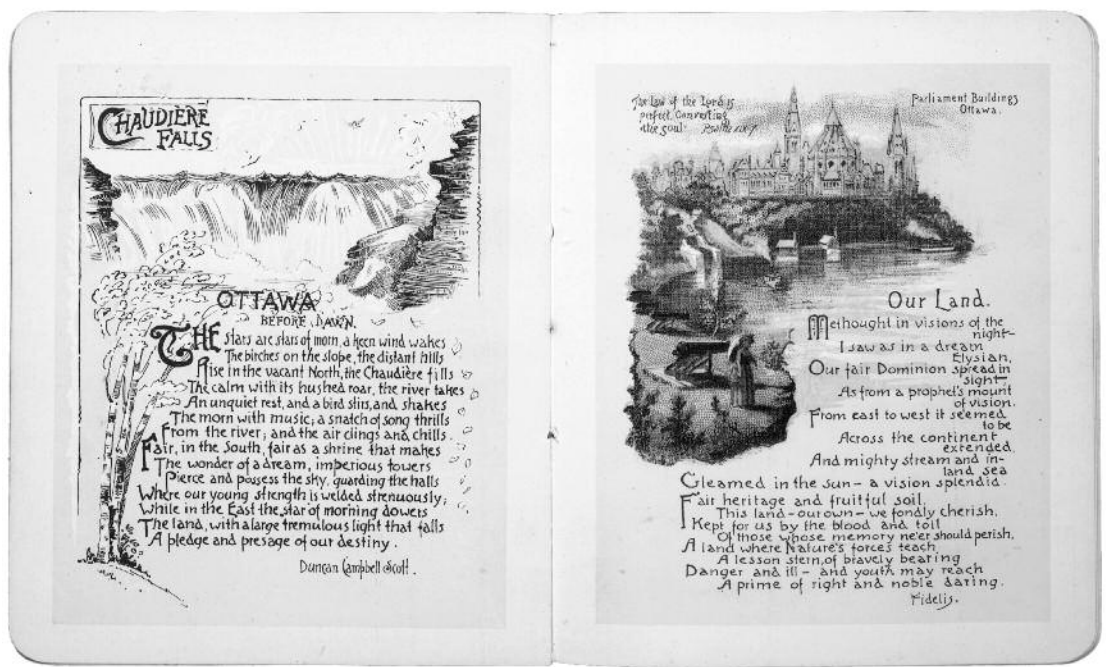 CHAUDIÈRE
FALLS
OTTAWA
BEFORE DAWN.
THE stars are stars of morn, a keen wind wakes
The birches on the slope, the distant hills
Rise in the vacant North, the Chaudière fills
The calm with its hushed roar, the river takes
An unquiet rest, and a bird stirs, and shakes
The morn with music; a snatch of song thrills
From the river; and the air clings and chills.
Fair, in the South, fair as a shrine that makes
The wonder of a dream, imperious towers
Pierce and possess the sky, guarding the halls
Where our young strength is welded strenuously;
While in the East the star of morning dowers
The land, with a large tremulous light that falls
A pledge and presage of our destiny.
Duncan Campbell Scott.
The Law of the Lord is
perfect, Converting
the soul. Psalm
Parliament Buildings
Ottawa.
Our Land.
Methought in visions of the
night—
I saw as in a dream
Elysian,
Our fair Dominion spread in
sight,
As from a prophet's mount
of vision.
From east to west it seemed
to be
Across the continent
extended,
And mighty stream and in-
land sea
Gleamed in the sun - a vision splendid.
Fair heritage and fruitful soil,
This land - our own - we fondly cherish,
Kept for us by the blood and toil
Of those whose memory ne'er should perish,
A land where Nature's forces teach
A lesson stern, of bravely bearing
Danger and ill - and youth may reach
A prime of right and noble daring.
Fidelis.